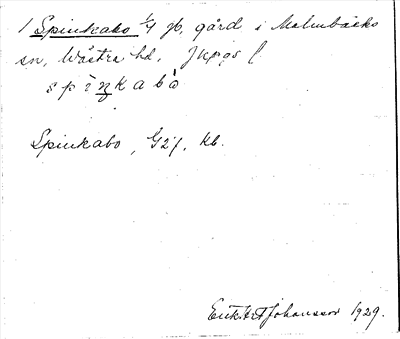 1 Spinkabo 1/4 fr, gård i Malmbäcks
sn, Västra hd, Jkpgs l.
spiŋkabò
Spinkabo, G2f. Kb.
Erik Art Johansson 1929.